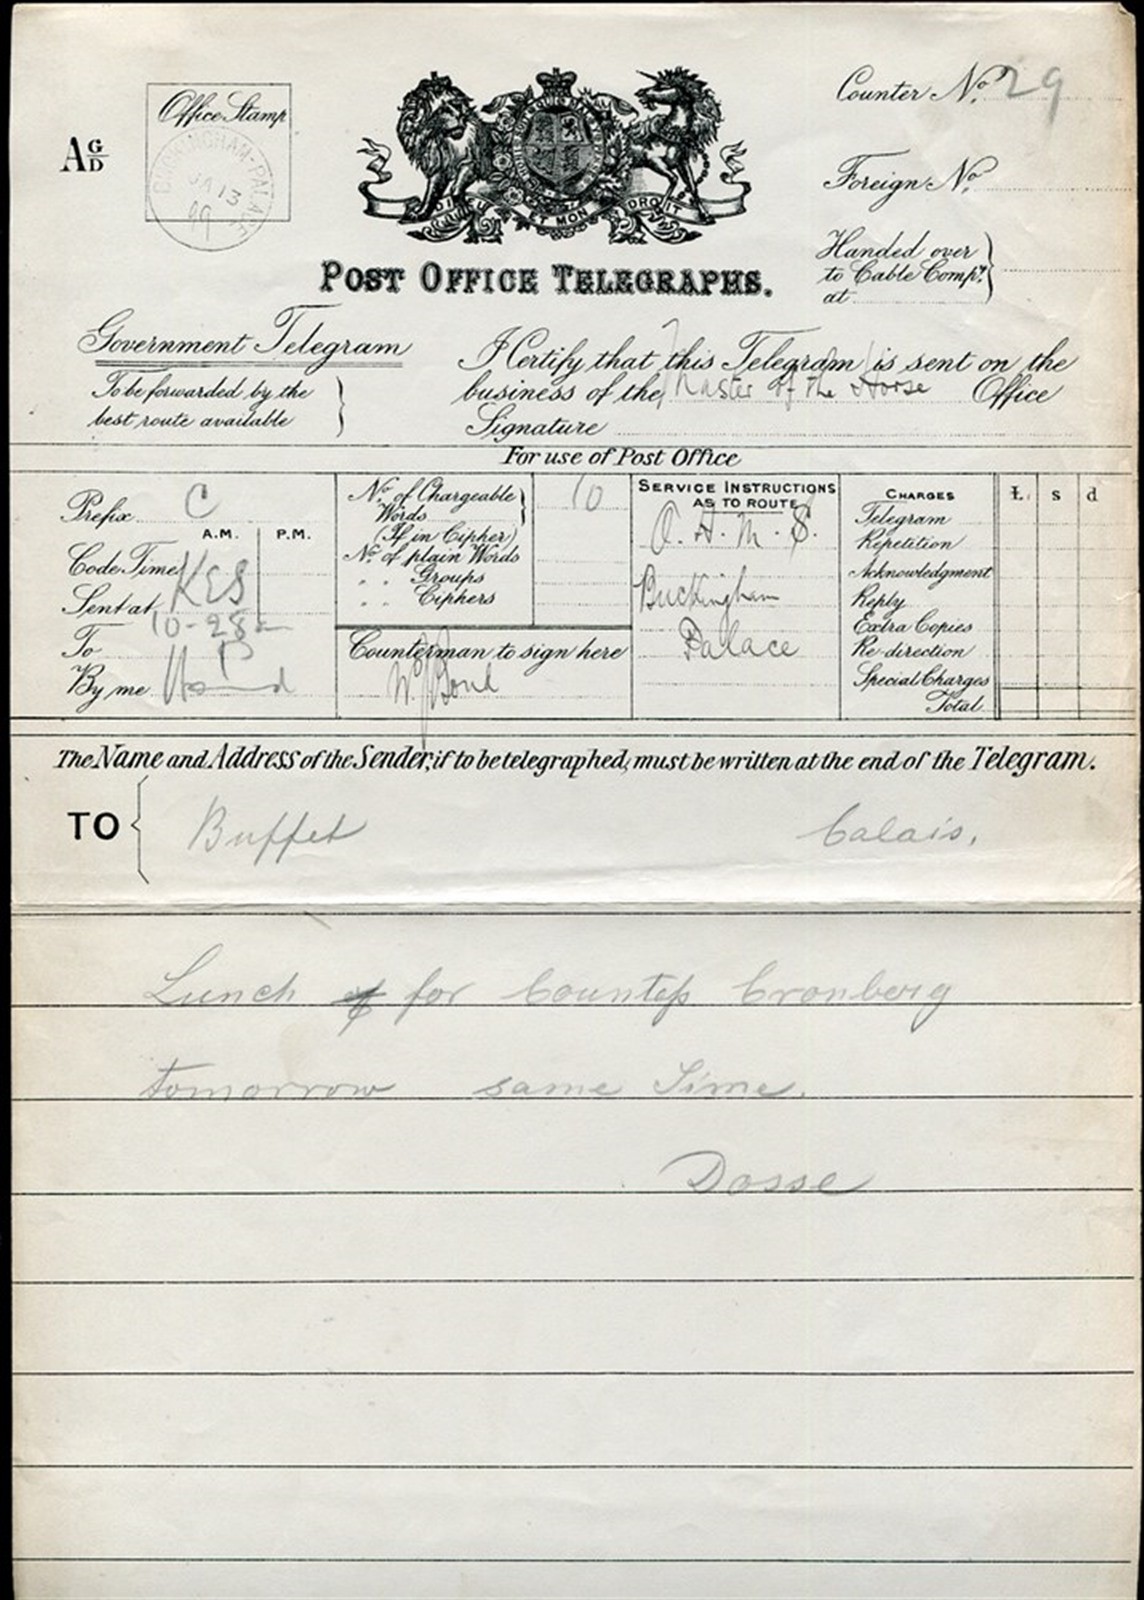 Counter No. 29
Office Stamp
A G/D
BUCKINGHAM-PALACE
JA 13
99
Foreign No.
DIEU ET MON DROIT
Handed over
to Cable Compy.
at
POST OFFICE TELEGRAPHS.
Government Telegram
To be forwarded by the
best route available
I Certify that this Telegram is sent on the
business of the Master of the Horse Office
Signature
For use of Post Office
Prefix C
A.M. P.M.
Code Time KES
Sent at 10-28
To
By me
No. of Chargeable Words 10
(If in Cipher)
No. of plain Words
" Groups
" Ciphers
Counterman to sign here
SERVICE INSTRUCTIONS
AS TO ROUTE
O. H. M. S.
Buckingham
Palace
CHARGES £. s d
Telegram
Repetition
Acknowledgment
Reply
Extra Copies
Re-direction
Special Charges
Total
The Name and Address of the Sender, if to be telegraphed, must be written at the end of the Telegram.
TO Buffet Calais.
Lunch for Countess Cronberg
tomorrow same Time.
Dosse